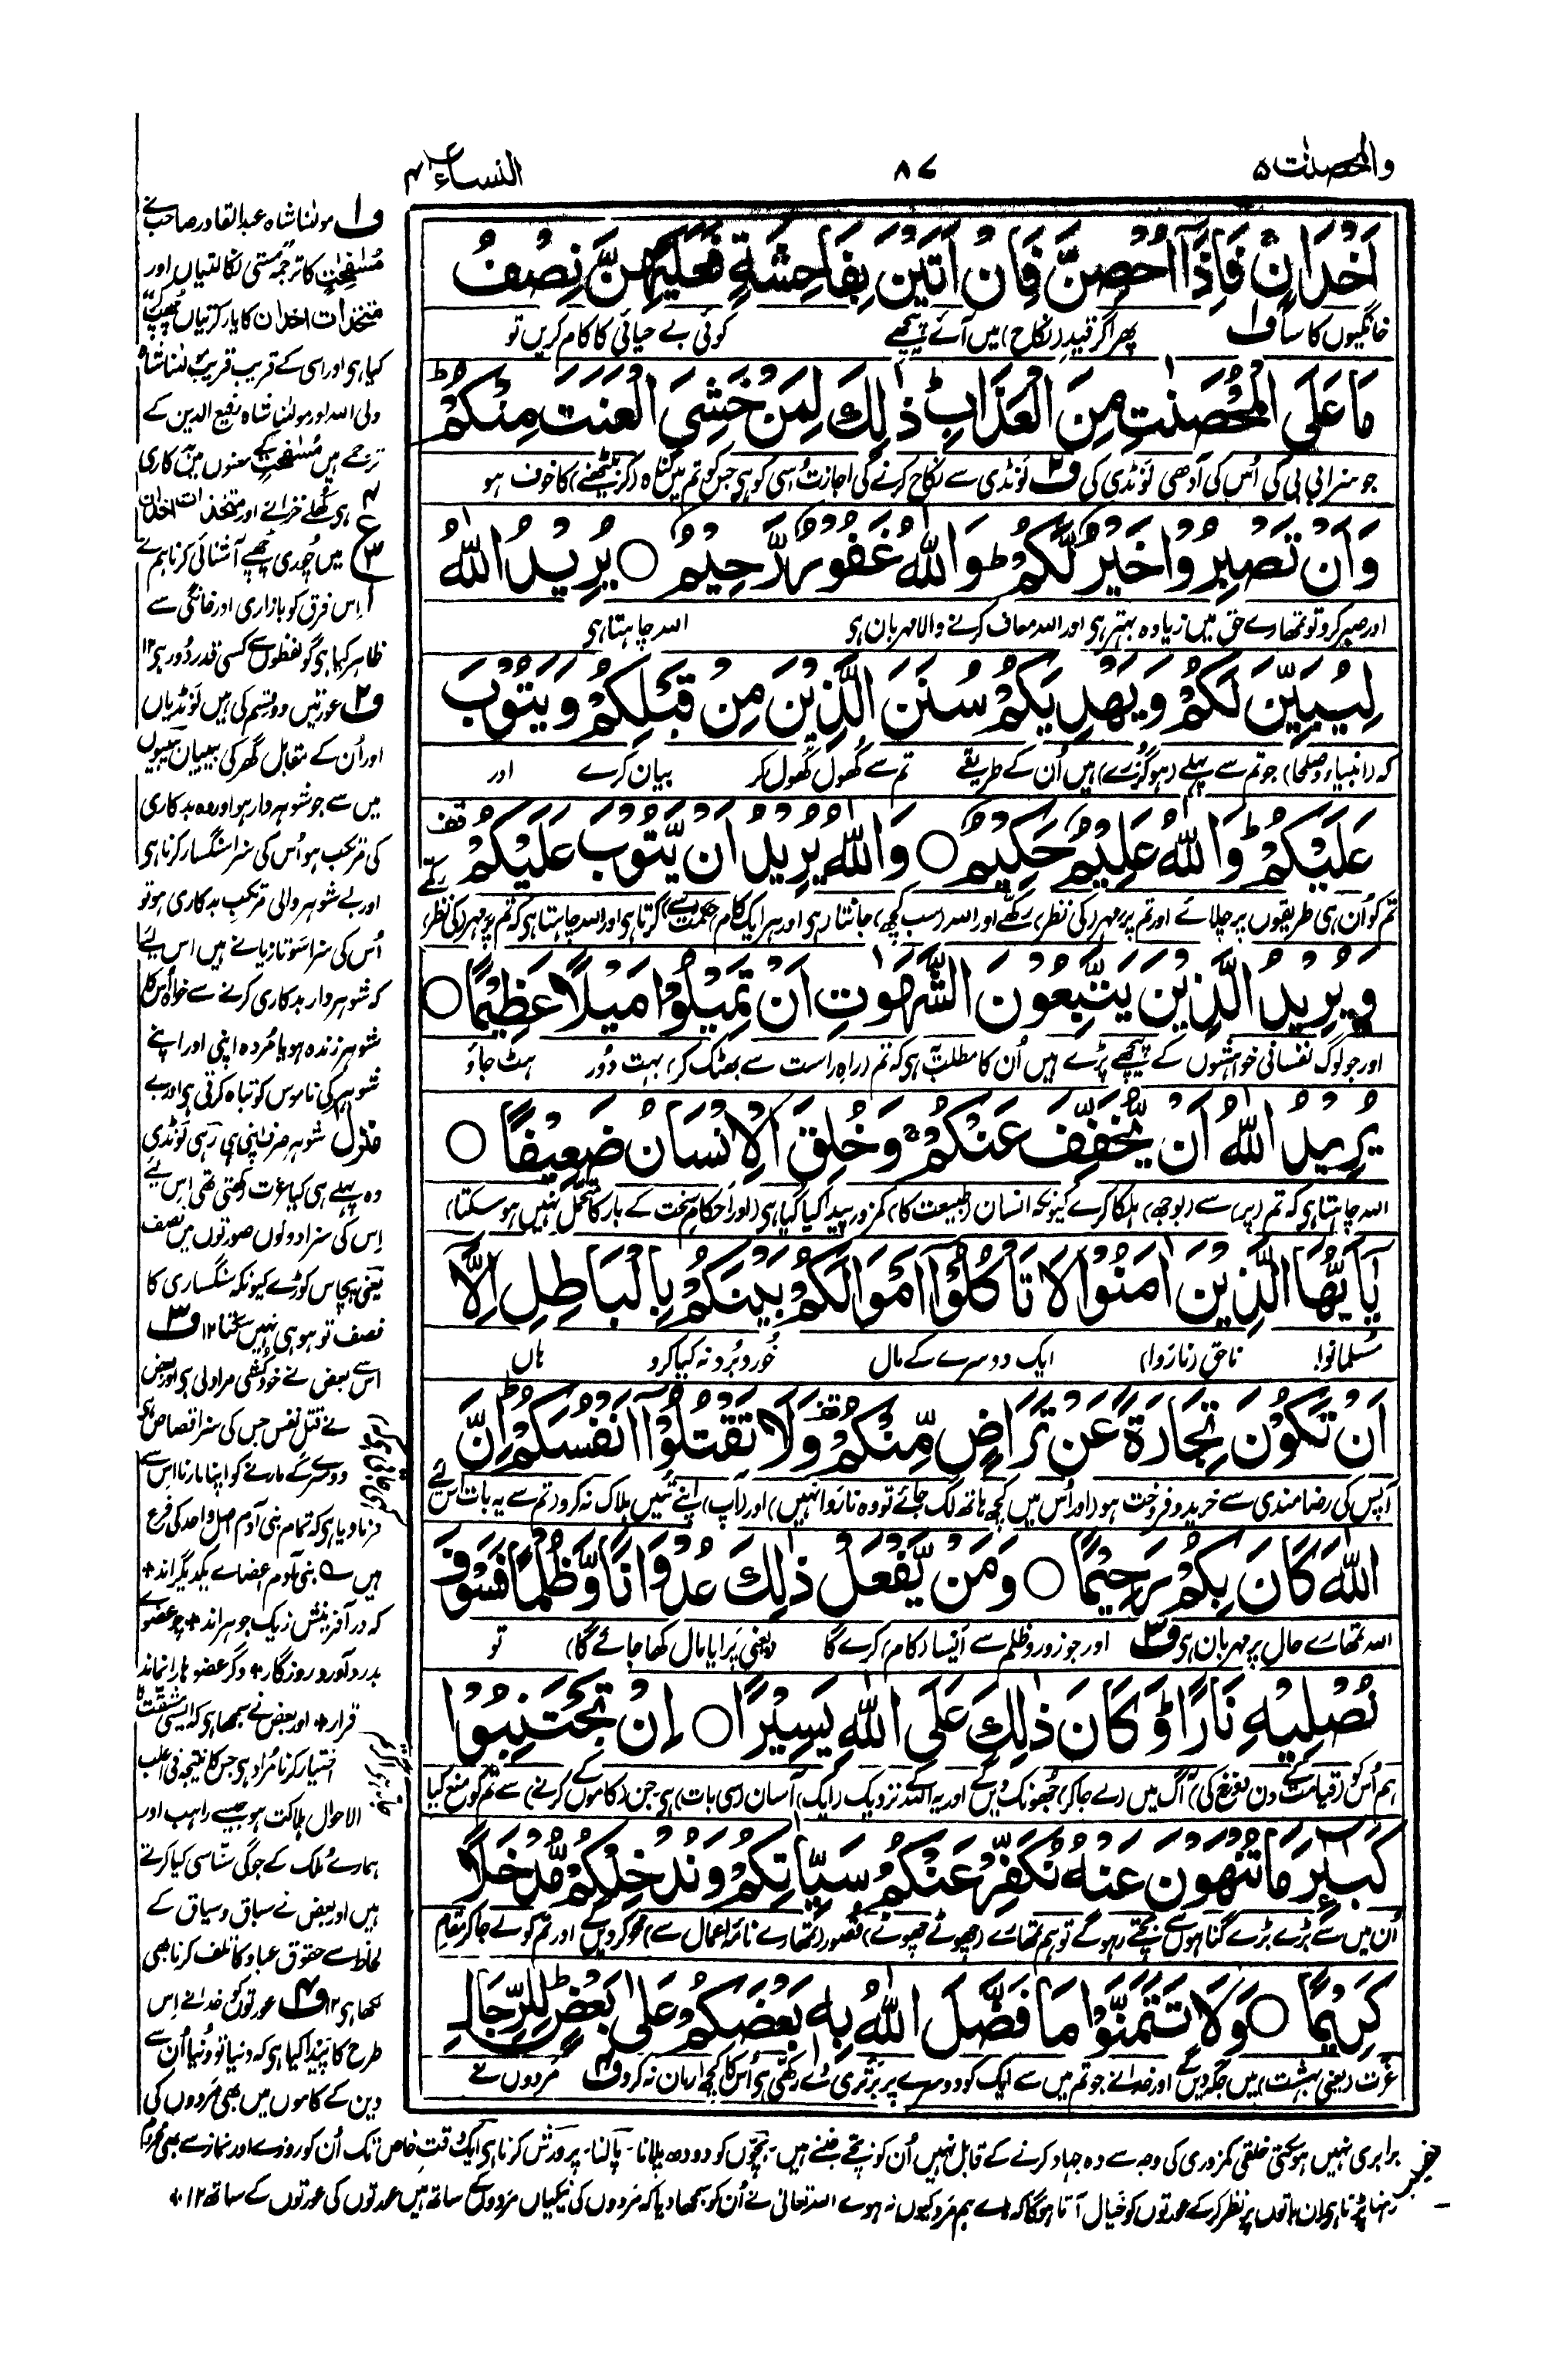 والمحصنت ۵
۸۷
النساء ۴
اَخْدَانٍ ۚ فَاِذَآ اُحْصِنَّ فَاِنْ اَتَيْنَ بِفَاحِشَةٍ فَعَلَيْهِنَّ نِصْفُ
خانگیوں کا سا ف۱ پھر اگر قیدِ (نکاح) میں آئے پیچھے کوئی بے حیائی کا کام کریں تو
مَا عَلَى الْمُحْصَنٰتِ مِنَ الْعَذَابِ ؕ ذٰلِكَ لِمَنْ خَشِيَ الْعَنَتَ مِنْكُمْ ؕ
جو سزا بی بی کی اُس کی آدھی لَونڈی کی ف۲ لَونڈی سے نکاح کرنے کی اجازت اُسی کو ہی جس کو تم میں گناہ (کر بیٹھنے) کا خوف ہو
وَاَنْ تَصْبِرُوْا خَيْرٌ لَّكُمْ ؕ وَاللّٰهُ غَفُوْرٌ رَّحِيْمٌ ○ يُرِيْدُ اللّٰهُ
اور صبر کرو تو تمھارے حق میں زیادہ بہتر ہی اور اللہ معاف کرنے والا مہربان ہی اللہ چاہتا ہی
لِيُبَيِّنَ لَكُمْ وَيَهْدِيَكُمْ سُنَنَ الَّذِيْنَ مِنْ قَبْلِكُمْ وَيَتُوْبَ
کہ (انبیاء و صلحا) جو تم سے پہلے (ہو گزرے) ہیں اُن کے طریقے تم سے کھول کھول کر بیان کرے اور
عَلَيْكُمْ ؕ وَاللّٰهُ عَلِيْمٌ حَكِيْمٌ ○ وَاللّٰهُ يُرِيْدُ اَنْ يَّتُوْبَ عَلَيْكُمْ قف
تم کو اُن ہی طریقوں پر چلائے اور تم پر (مہر) کی نظر رکھے اور اللہ (سب کچھ) جانتا ہی اور ہر ایک کام حکمت سے کرتا ہی اور اللہ چاہتا ہی کہ تم پر مہر (کی نظر) رکھے
وَيُرِيْدُ الَّذِيْنَ يَتَّبِعُوْنَ الشَّهَوٰتِ اَنْ تَمِيْلُوْا مَيْلًا عَظِيْمًا ○
اور جو لوگ نفسانی خواہشوں کے پیچھے پڑے ہیں اُن کا مطلب یہ ہی کہ تم (راہِ راست سے بھٹک کر) بہت دُور ہٹ جاؤ
يُرِيْدُ اللّٰهُ اَنْ يُّخَفِّفَ عَنْكُمْ ۚ وَخُلِقَ الْاِنْسَانُ ضَعِيْفًا ○
اللہ چاہتا ہی کہ تم (پر) سے (بوجھ) ہلکا کرے کیونکہ انسان (طبیعت کا) کمزور پیدا کیا گیا ہی (اور احکامِ سخت کے بار کا متحمل نہیں ہو سکتا)
يٰٓاَيُّهَا الَّذِيْنَ اٰمَنُوْا لَا تَاْكُلُوْٓا اَمْوَالَكُمْ بَيْنَكُمْ بِالْبَاطِلِ اِلَّآ
مُسلمانو! ناحق (ناروا) ایک دوسرے کے مال خُورد بُرد نہ کیا کرو ہاں
اَنْ تَكُوْنَ تِجَارَةً عَنْ تَرَاضٍ مِّنْكُمْ قف وَلَا تَقْتُلُوْٓا اَنْفُسَكُمْ ؕ اِنَّ
آپس کی رضامندی سے خرید و فروخت ہو (اور اُس میں کچھ ہاتھ لگ جائے تو وہ ناروا نہیں) اور (آپ) اپنے تئیں ہلاک نہ کرو (تم سے یہ بات اس لئے
اللّٰهَ كَانَ بِكُمْ رَحِيْمًا ○ وَمَنْ يَّفْعَلْ ذٰلِكَ عُدْوَانًا وَّظُلْمًا فَسَوْفَ
اللہ تمھارے حال پر مہربان ہی ف۳ اور جو زور و ظلم سے ایسا (کام) کرے گا (یعنی پَرایا مال کھا جائے گا) تو
نُصْلِيْهِ نَارًا ؕ وَكَانَ ذٰلِكَ عَلَى اللّٰهِ يَسِيْرًا ○ اِنْ تَجْتَنِبُوْا
ہم اُس کو (قیامت کے دن دوزخ کی) آگ میں (لے جا کر) جھونک دیں گے اور یہ اللہ کے نزدیک (ایک) آسان (سی بات) ہی جن (کاموں کے کرنے) سے تم کو منع کیا
كَبَآئِرَ مَا تُنْهَوْنَ عَنْهُ نُكَفِّرْ عَنْكُمْ سَيِّاٰتِكُمْ وَنُدْخِلْكُمْ مُّدْخَلًا
اُن میں سے بڑے بڑے گناہوں سے بچتے رہو گے تو ہم تمھارے (چھوٹے چھوٹے) قصور (تمھارے نامۂ اعمال سے) محو کر دیں گے اور تم کو لے جا کر مقامِ
كَرِيْمًا ○ وَلَا تَتَمَنَّوْا مَا فَضَّلَ اللّٰهُ بِهٖ بَعْضَكُمْ عَلٰى بَعْضٍ ؕ لِلرِّجَالِ
عزت (یعنی بہشت) میں جگہ دیں گے اور خدا نے جو تم میں سے ایک کو دوسرے پر برتری دے رکھی ہی اُس کا کچھ ارمان نہ کرو ف۴ مَردوں نے
ف۱ مولٰنا شاہ عبدالقادر صاحب نے
مُسٰفِحٰتٍ کا ترجمہ مستی نکالتیاں اور
متخذات اخدان کا یار کرتیاں چھپ کر
کیا ہی اور اسی کے قریب قریب مولٰنا شاہ
ولی اللہ اور مولٰنا شاہ رفیع الدین کے
ترجمے ہیں مُسٰفِحٰتٍ کے معنوں میں بدکاری
ہی کُھلے خزانے اور متخذات اخدان
میں چوری چھپے آشنائی کرنا ہم نے
اِس فرق کو بازاری اور خانگی سے
ظاہر کیا ہی گو لفظوں سے کسی قدر دُور ہی ۱۲
ف۲ عورتیں دو قسم کی ہیں لَونڈیاں
اور اُن کے مقابل گھر کی بیبیاں بیبیوں
میں سے جو شوہردار ہو اور وہ بدکاری
کی مرتکب ہو اُس کی سزا سنگسار کرنا ہی
اور بے شوہر والی مرتکب بدکاری ہو تو
اُس کی سزا سَو تازیانے ہیں اس لئے
کہ شوہردار بدکاری کرنے سے خواہ اُس کا
شوہر زندہ ہو یا مُردہ اپنی اور اپنے
شوہر کی ناموس کو تباہ کرتی ہی اور بے
شوہر صرف اپنی ہی رہی لَونڈی
وہ پہلے ہی کیا عزت رکھتی تھی اِس لئے
اِس کی سزا دونوں صورتوں میں نصف
یعنی پچاس کوڑے کیونکہ سنگساری کا
نصف تو ہو ہی نہیں سکتا ۱۲ ف۳
اس سے بعض نے خودکشی مراد لی ہی اور بعض
نے قتل نفس جس کی سزا قصاص ہی
دوسرے کے مارنے کو اپنا مارنا اِس سے
فرما دیا ہی کہ تمام بنی آدم اصلِ واحد کی فرع
ہیں ؎ بنی آدم اعضاے یکدیگر اند +
کہ در آفرینش ز یک جوہر اند + چو عضوے
بدرد آورد روزگار + دگر عضوہا را نماند
قرار + اور بعض نے سمجھا ہی کہ ایسی مشقت کا
اختیار کرنا مُراد ہی جس کا نتیجہ فی اغلب
الاحوال ہلاکت ہو جیسے راہب اور
ہمارے مُلک کے جوگی سنّاسی کیا کرتے
ہیں اور بعض نے سباق و سیاق کے
لحاظ سے حقوق عباد کا تلف کرنا بھی
لکھا ہی ۱۲ ف۴ عورتوں کو خدا نے اِس
طرح کا پَیدا کیا ہی کہ دنیا تو دُنیا اُن سے
دین کے کاموں میں بھی مَردوں کی
برابری نہیں ہو سکتی خلقی کمزوری کی وجہ سے وہ جہاد کرنے کے قابل نہیں اُن کو بچے جننے ہیں۔ بچّوں کو دودھ پلانا۔ پالنا۔ پرورش کرنا ہی ایک وقتِ خاص تک اُن کو روزے اور نماز سے بھی محروم
رہنا پڑتا ہی اِن باتوں پر نظر کر کے عورتوں کو خیال آتا ہوگا کہ اے ہم مرد کیوں نہ ہوے اللہ تعالٰی نے اُن کو سمجھا دیا کہ مَردوں کی نیکیاں مَردوں کے ساتھ ہیں عورتوں کی عورتوں کے ساتھ ۱۲ +